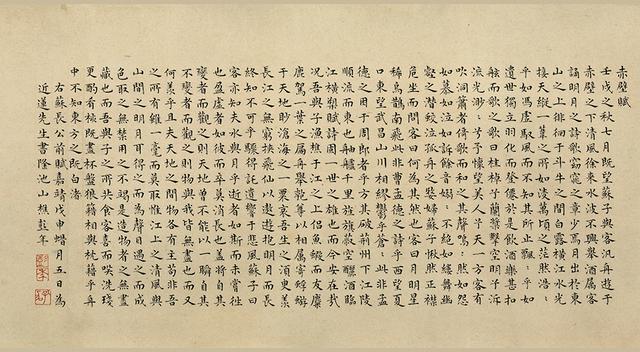 赤壁賦
壬戌之秋七月既望蘇子與客汎舟遊于
赤壁之下清風徐來水波不興舉酒屬客
誦明月之詩歌窈窕之章少焉月出於東
山之上徘徊于斗牛之間白露橫江水光
接天縱一葦之所如凌萬頃之茫然浩〻
乎如馮虛馭風而不知其所止飄〻乎如
遺世獨立羽化而登僊於是飲酒樂甚扣
舷而歌之歌曰桂棹兮蘭槳擊空明兮泝
流光渺〻兮予懷望美人兮天一方客有
吹洞簫者倚歌而和之其聲嗚〻然如怨
如慕如泣如訴餘音嫋〻不絕如縷舞幽
壑之潛蛟泣孤舟之嫠婦蘇子愀然正襟
危坐而問客曰何為其然也客曰月明星
稀烏鵲南飛此非曹孟德之詩乎西望夏
口東望武昌山川相繆鬱乎蒼〻此非孟
德之困于周郎者乎方其破荊州下江陵
順流而東也舳艫千里旌旗蔽空釃酒臨
江橫槊賦詩固一世之雄也而今安在哉
況吾與子漁樵于江之上侶魚鰕而友麋
鹿駕一葉之扁舟舉匏尊以相屬寄蜉蝣
于天地眇滄海之一粟哀吾生之須臾羨
長江之無窮挾飛仙以遨遊抱明月而長
終知不可乎驟得託遺響于悲風蘇子曰
客亦知夫水與月乎逝者如斯而未嘗往
也盈虛者如彼而卒莫消長也蓋將自其
變者而觀之則天地曾不能以一瞬自其
不變者而觀之則物與我皆無盡也而又
何羨乎且夫天地之間物各有主苟非吾
之所有雖一毫而莫取惟江上之清風與
山間之明月耳得之而為聲目遇之而成
色取之無禁用之不竭是造物者之無盡
藏也而吾與子之所共食客喜而笑洗琖
更酌肴核既盡杯盤狼籍相與枕藉乎舟
中不知東方之既白
右蘇長公前賦嘉靖戊申月五日為
近蓮先生書隆池山樵彭年